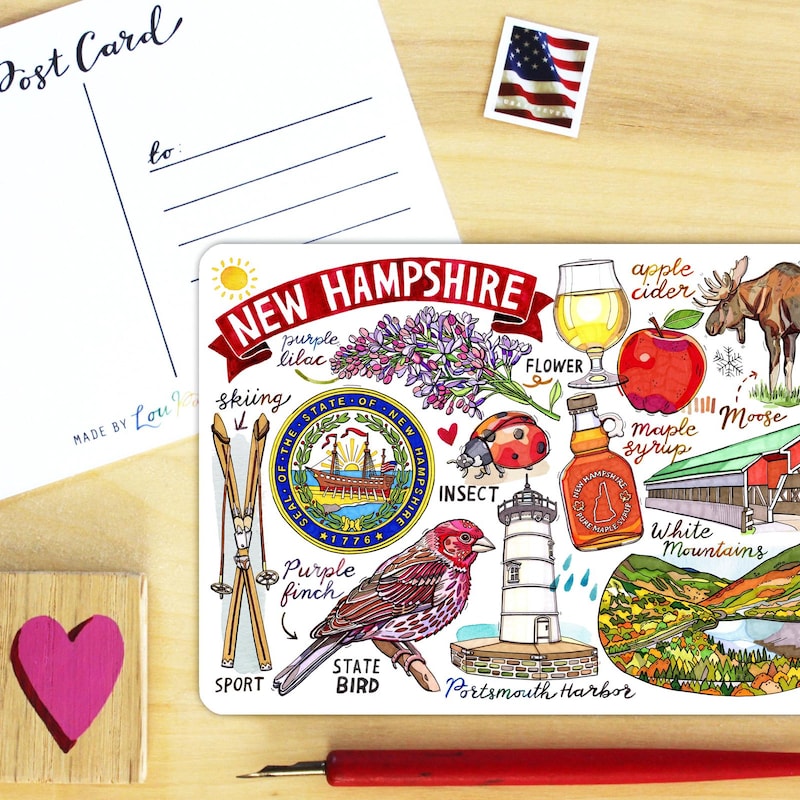 Post Card
to:
MADE BY Lou
NEW HAMPSHIRE
purple
lilac
FLOWER
apple
cider
Moose
skiing
SPORT
SEAL · OF · THE · STATE · OF · NEW · HAMPSHIRE
1776
INSECT
maple
syrup
NEW HAMPSHIRE
PURE MAPLE SYRUP
White
Mountains
Purple
finch
STATE
BIRD
Portsmouth Harbor